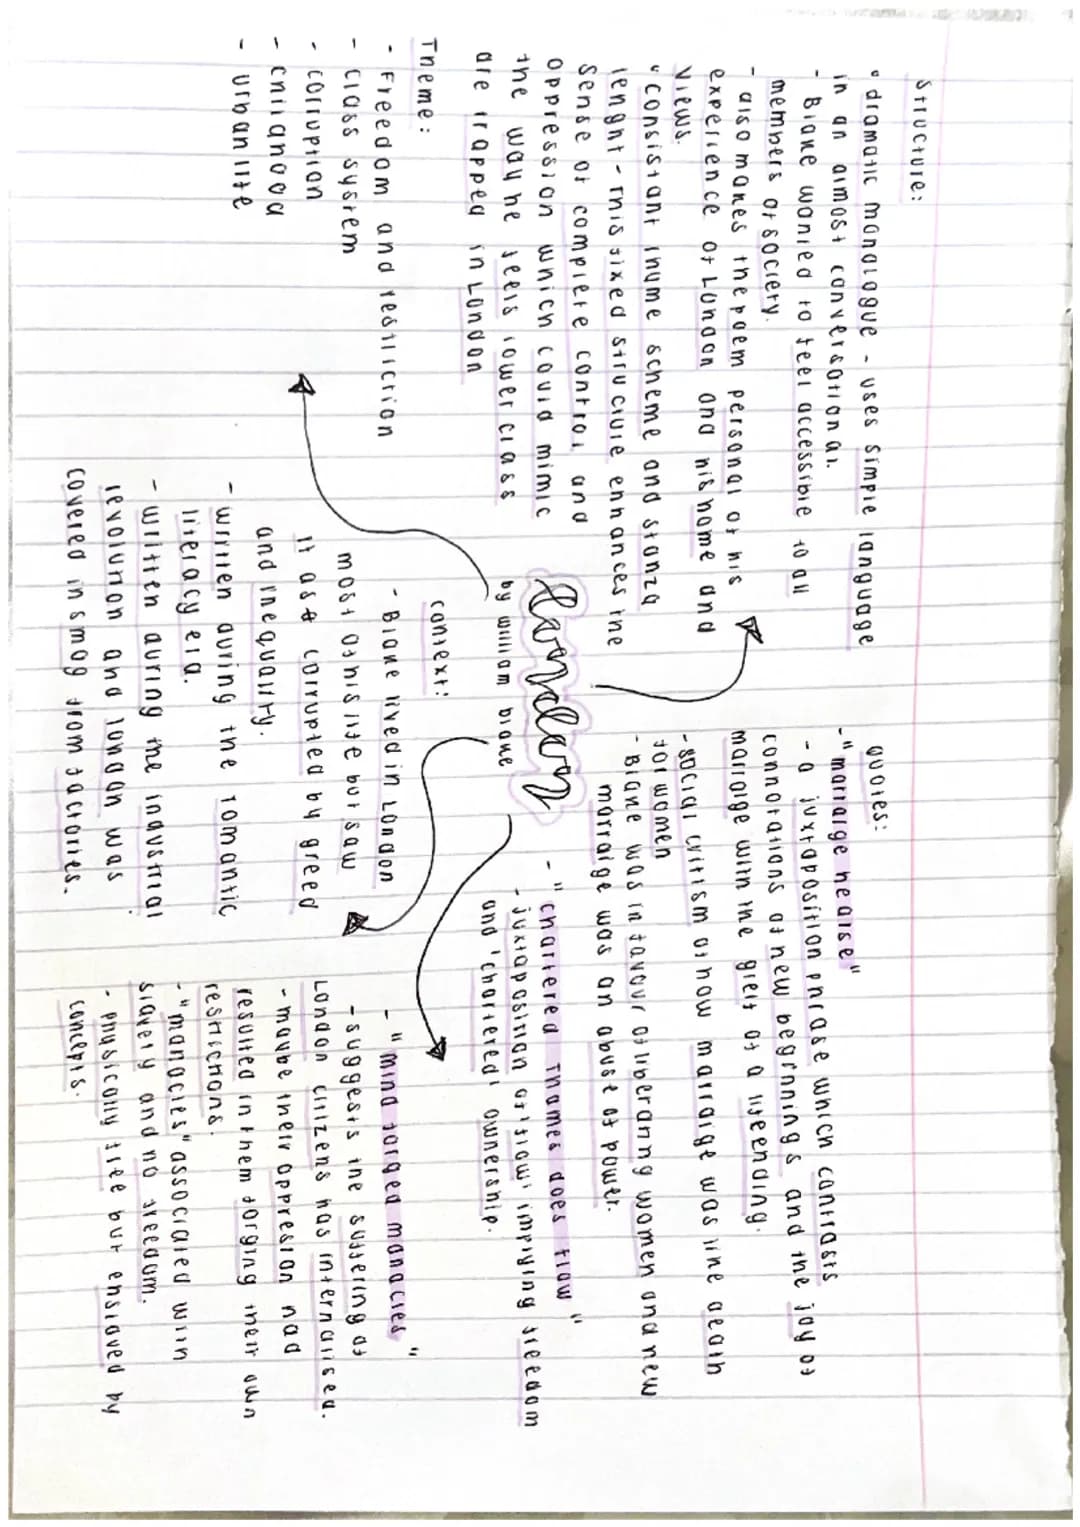 Structure:
" dramatic monologue - uses simple language
in an almost conversational.
- Blake wanted to feel accessible to all
members of society.
- also makes the poem personal of his
experience of London and his home and
views.
" consistant rhyme scheme and stanza
lenght - this fixed structure enhances the
sense of complete control and
oppression which could mimic
the way he feels lower class
are trapped in London
Theme:
- Freedom and restriction
- class system
- corruption
- childhood
- urban life
London
by william blake
context:
- Blake lived in London
most of his life but saw
it as a corrupted by greed
and inequality.
- written during the romantic
literacy era.
- written during the industrial
revolution and london was
covered in smog from factories.
quotes:
- "marraige hearse"
- a juxtaposition phrase which contrasts
connotations of new beginnings and the joy of
marraige with the grief of a life ending.
- social critism of how marraige was like death
for women
- Blake was in favour of liberating women and new
marraige was an abuse of power.
- "chartered Thames does flow"
- juxtaposition of 'flow' implying freedom
and 'chartered' ownership.
- "mind forged manacles"
- suggests the suffering of
London citizens has internalised.
- maybe their oppresion had
resulted in them forging their own
restrictions.
- "manacles" associated with
slavery and no freedom.
- physically free but enslaved by
concepts.